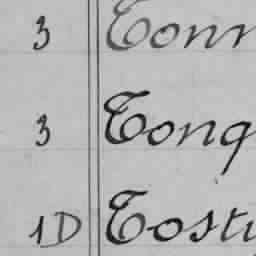 3 Tonn
3 Tong
1D Tost